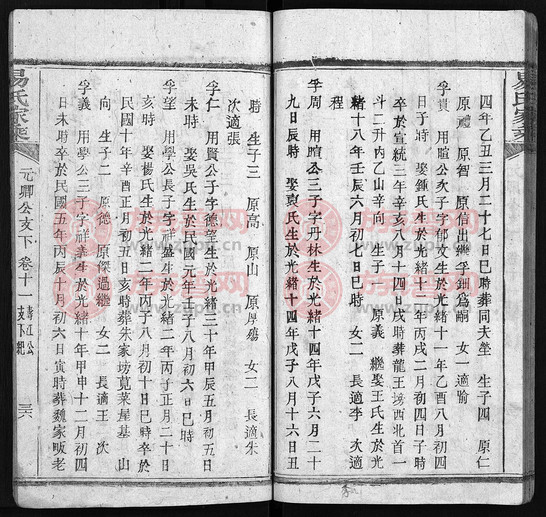 四年乙丑三月二十七日巳時葬同夫塋 生子四 原仁
原禮 原智 原信出繼孚釧爲嗣 女一 適喻
孚貴 用暄公次子字郁文生於光緒十一年乙酉八月初四
日子時 娶鍾氏生於光緒十二年丙戌二月初四日子時
卒於宣統三年辛亥八月十四日戌時葬龍王塝西北首一
斗二升內乙山辛向 生子一 原義 繼娶王氏生於光
緒十八年壬辰六月初七日巳時 女二 長適李 次適
程
孚周 用暄公三子字丹林生於光緒十四年戊子六月二十
九日辰時 娶袁氏生於光緒十四年戊子八月十六日丑
時 生子三 原高 原山 原厚殤 女二 長適朱
次適張
孚仁 用賢公子字德望生於光緒三十年甲辰五月初五日
時 娶吳氏生於民國元年壬子八月初六日巳時
孚望 用學公長子字祥盛生於光緒二年丙子正月二十日
亥時 娶楊氏生於光緒二年丙子八月初十日巳時卒於
民國十年辛酉正月初五日亥時葬朱家塝莧菜屋基 山
向 生子二 原德 原傑過繼 女二 長適王 次
孚義 用學公三子字祥義生於光緒十年甲申十二月初四
日未時卒於民國五年丙辰十月初六日寅時葬魏家畈老
易氏家乘
元卿公支下 卷十一